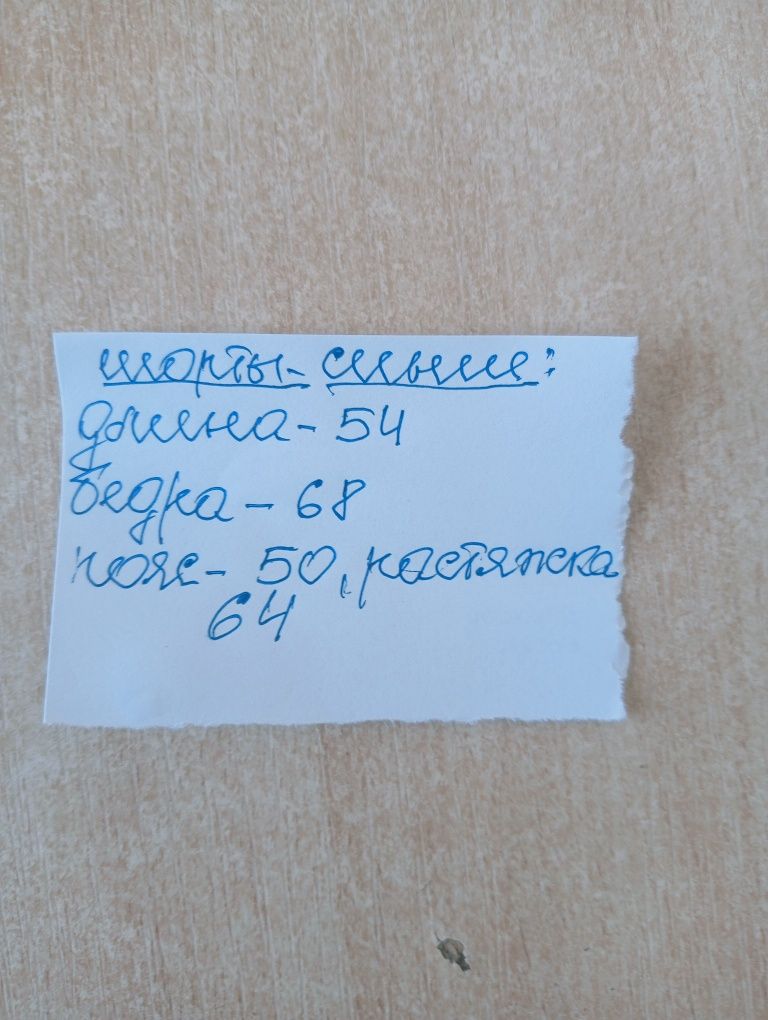 шорты- синие:
длина - 54
бедра - 68
пояс - 50, растяжка
64